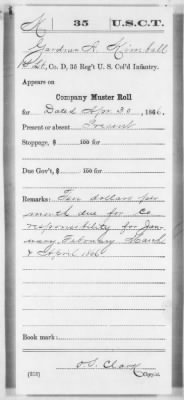 K | 35 | U.S.C.T.
Gardner A. Kimball
Lt., Co. D, 35 Reg't U. S. Col'd Infantry.
Appears on
Company Muster Roll
for Dated Apr 30, 1866.
Present or absent Present
Stoppage, $ 100 for
Due Gov't, $ 100 for
Remarks: Ten dollars per
month due for Co
responsibility for Jan-
uary February March
& April 1866
Book mark:
O.S. Clark
(858) Copyist.